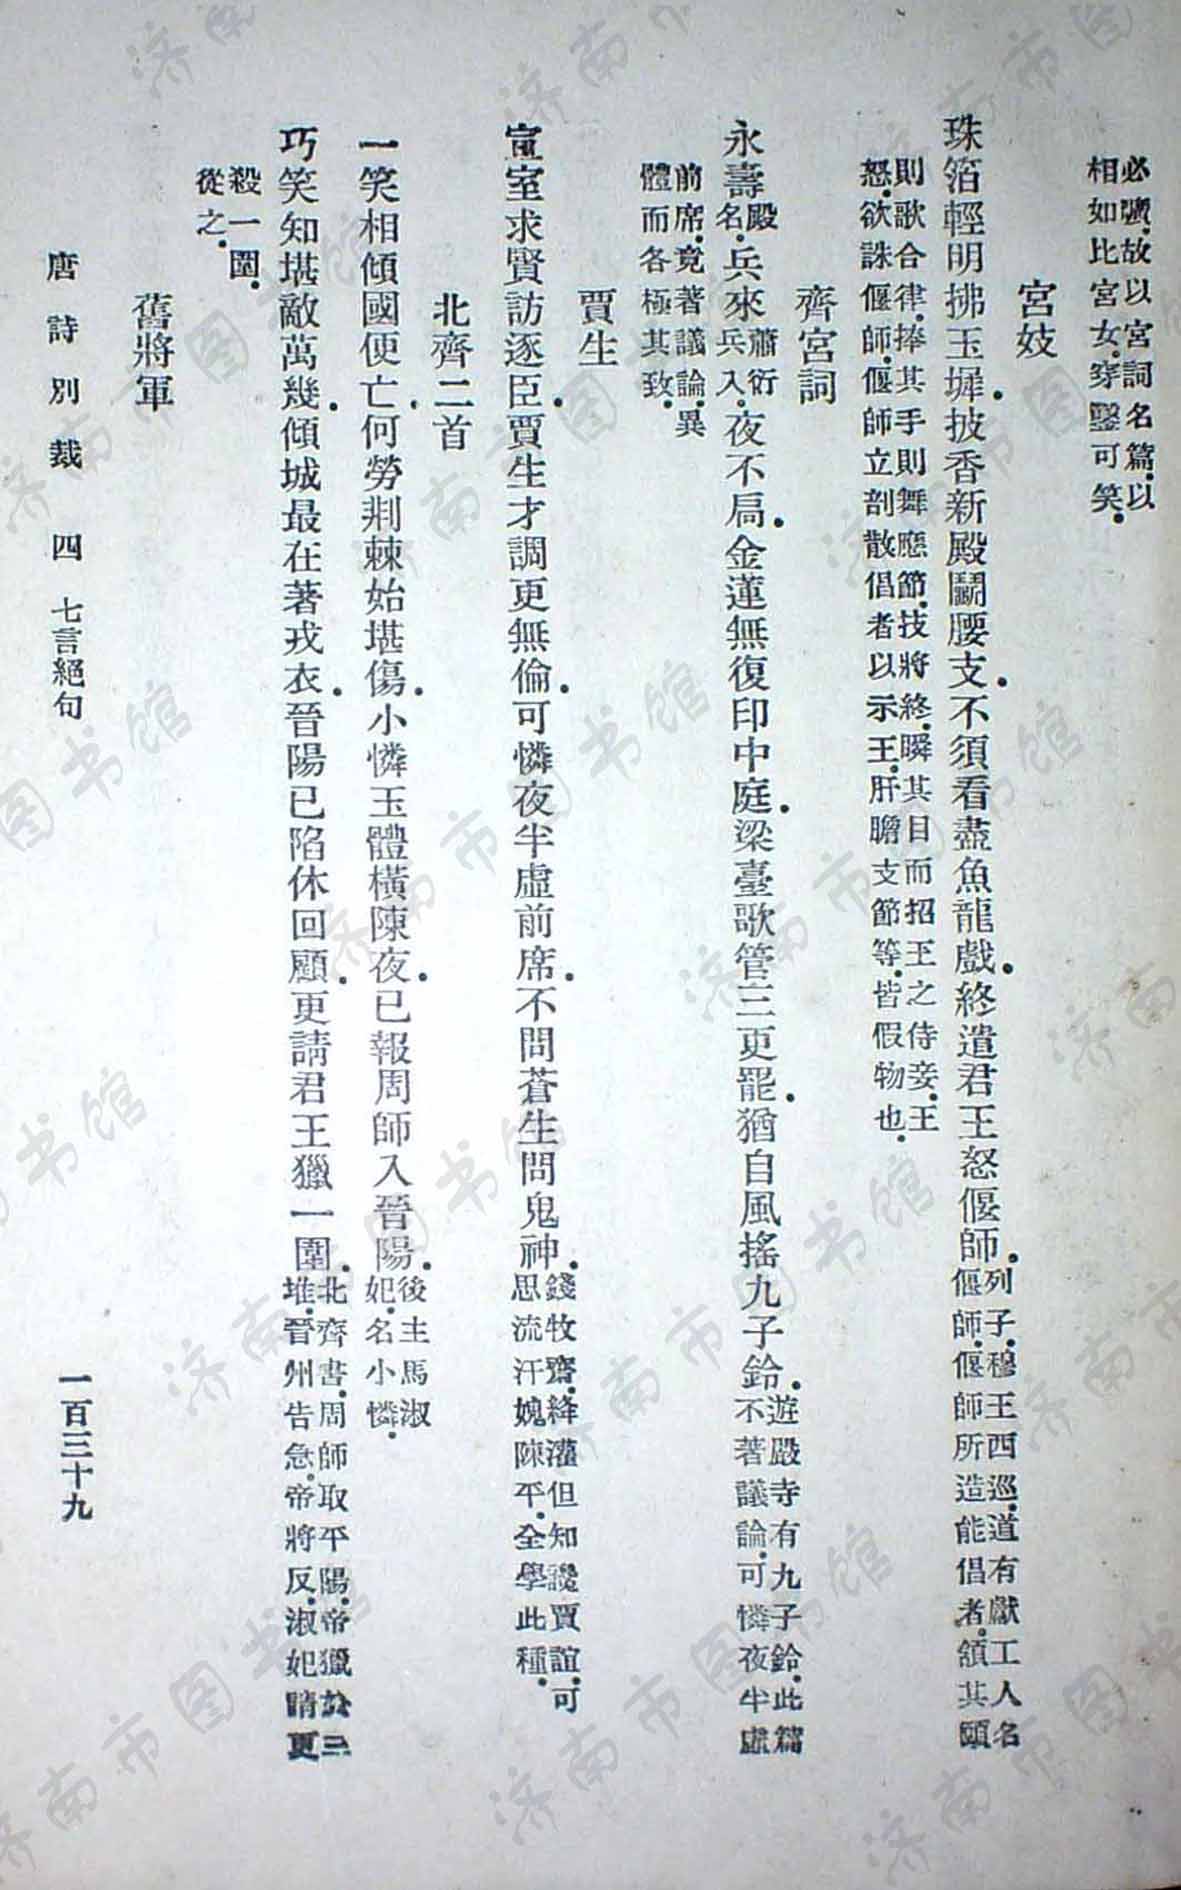 必瓊．故以宮詞名篇．以
相如比宮女．穿鑿可笑．
宮妓
珠箔輕明拂玉墀．披香新殿鬬腰支．不須看盡魚龍戲．終遣君王怒偃師．
列子．穆王西巡．道有獻工人名
偃師．偃師所造能倡者．頷其頤
則歌合律．捧其手則舞應節．技將終．瞬其目而招王之侍妾．王
怒．欲誅偃師．偃師立剖散倡者以示王．肝膽支節等．皆假物也．
齊宮詞
永壽
殿
名．
兵來
蕭衍
兵入．
夜不扃．金蓮無復印中庭．梁臺歌管三更罷．猶自風搖九子鈴．
遊嚴寺有九子鈴．此篇
不著議論．可憐夜半虛
前席．竟著議論．異
體而各極其致．
賈生
宣室求賢訪逐臣．賈生才調更無倫．可憐夜半虛前席．不問蒼生問鬼神．
錢牧齋．絳灌但知讒賈誼．可
思流汗媿陳平．全學此種．
北齊二首
一笑相傾國便亡．何勞荆棘始堪傷．小憐玉體橫陳夜．已報周師入晉陽．
後主馬淑
妃．名小憐．
巧笑知堪敵萬幾．傾城最在著戎衣．晉陽已陷休回顧．更請君王獵一圍．
北齊書．周師取平陽．帝獵於三
堆．晉州告急．帝將反．淑妃請更
殺一圍．
從之．
舊將軍
唐詩別裁 四 七言絕句 一百三十九
济南市图书馆